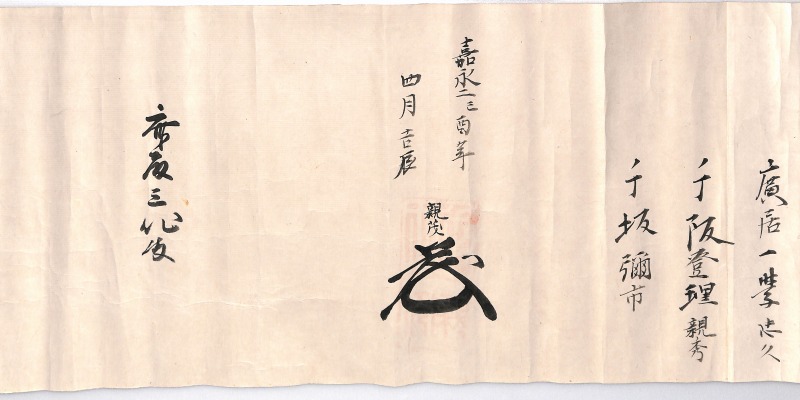 廣居一學忠久
千阪登理親秀
千坂彌市
嘉永二己酉年
四月吉辰
親茂
三代